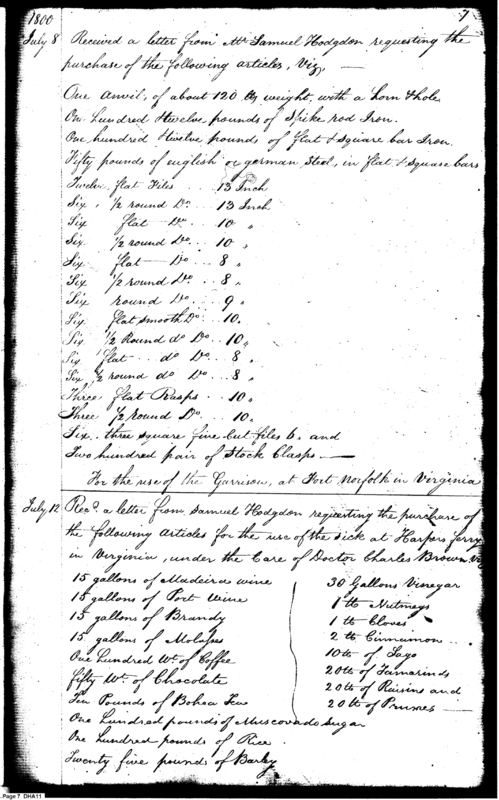 1800
7
July 8 Received a letter from Mr. Samuel Hodgdon requesting the
purchase of the following articles, Viz, —
One Anvil, of about 120 lbs weight, with a horn & hole
One hundred & twelve pounds of Spike rod Iron.
One hundred & twelve pounds of flat & square bar Iron.
Fifty pounds of english or german Steel, in flat & square bars
Twelve flat Files ... 13 Inch
Six, 1/2 round Do. .. 13 Inch
Six flat — Do ... 10 "
Six 1/2 round Do ... 10 "
Six flat — Do ... 8 "
Six 1/2 round Do ... 8 "
Six round Do .... 9 "
Six flat smooth Do ... 10 "
Six 1/2 Round do Do .. 10 "
Six flat ... do Do .. 8 "
Six 1/2 round do Do .. 8 "
Three flat Rasps .. 10 "
Three 1/2 Round Do .. 10 "
Six .. three square fine cut files 6. and
Two hundred pair of Stock Clasps. —
For the use of the Garrison, at Fort Norfolk in Virginia
July 12 Recd. a letter from Samuel Hodgdon requesting the purchase of
the following Articles for the use of the Sick at Harpers ferry
in Virginia, under the Care of Doctor Charles Brown, Viz
15 gallons of Madeira wine
15 gallons of Port Wine
15 gallons of Brandy
15 gallons of Molasses
One Hundred Wt. of Coffee
fifty Wt. of Chocolate
Ten Pounds of Bohea Tea
One Hundred pounds of Muscovado Sugar
One Hundred pounds of Rice.
Twenty five pounds of Barley
30 Gallons Vinegar
1 lb Nutmegs
1 lb Cloves
2 lb Cinnamon
10 lb of Sago
20 lb of Tamarinds
20 lb of Raisins and
20 lb of Prunes —
Page 7 DHA11